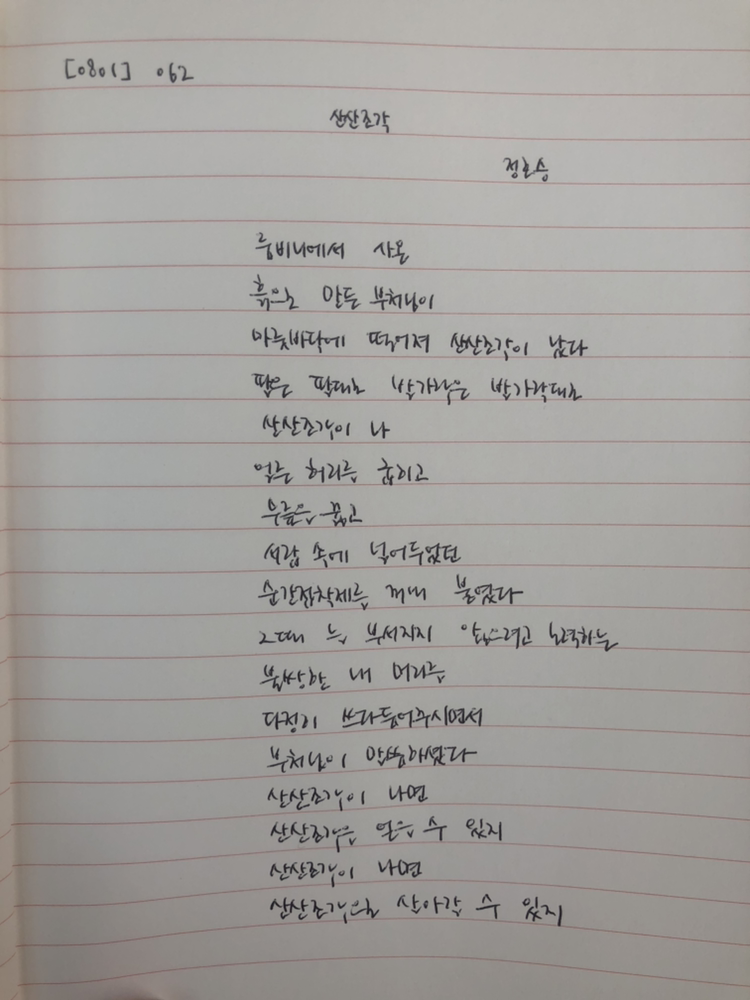 [0801] 062
산산조각
정호승
룸비니에서 사온
흙으로 만든 부처님이
마룻바닥에 떨어져 산산조각이 났다
팔은 팔대로 발가락은 발가락대로
산산조각이 나
얼른 허리를 굽히고
무릎을 꿇고
서랍 속에 넣어두었던
순간접착제를 꺼내 붙였다
그때 늘 부서지지 않으려고 노력하는
불쌍한 내 머리를
다정히 쓰다듬어주시면서
부처님이 말씀하셨다
산산조각이 나면
산산조각을 얻을 수 있지
산산조각이 나면
산산조각으로 살아갈 수 있지